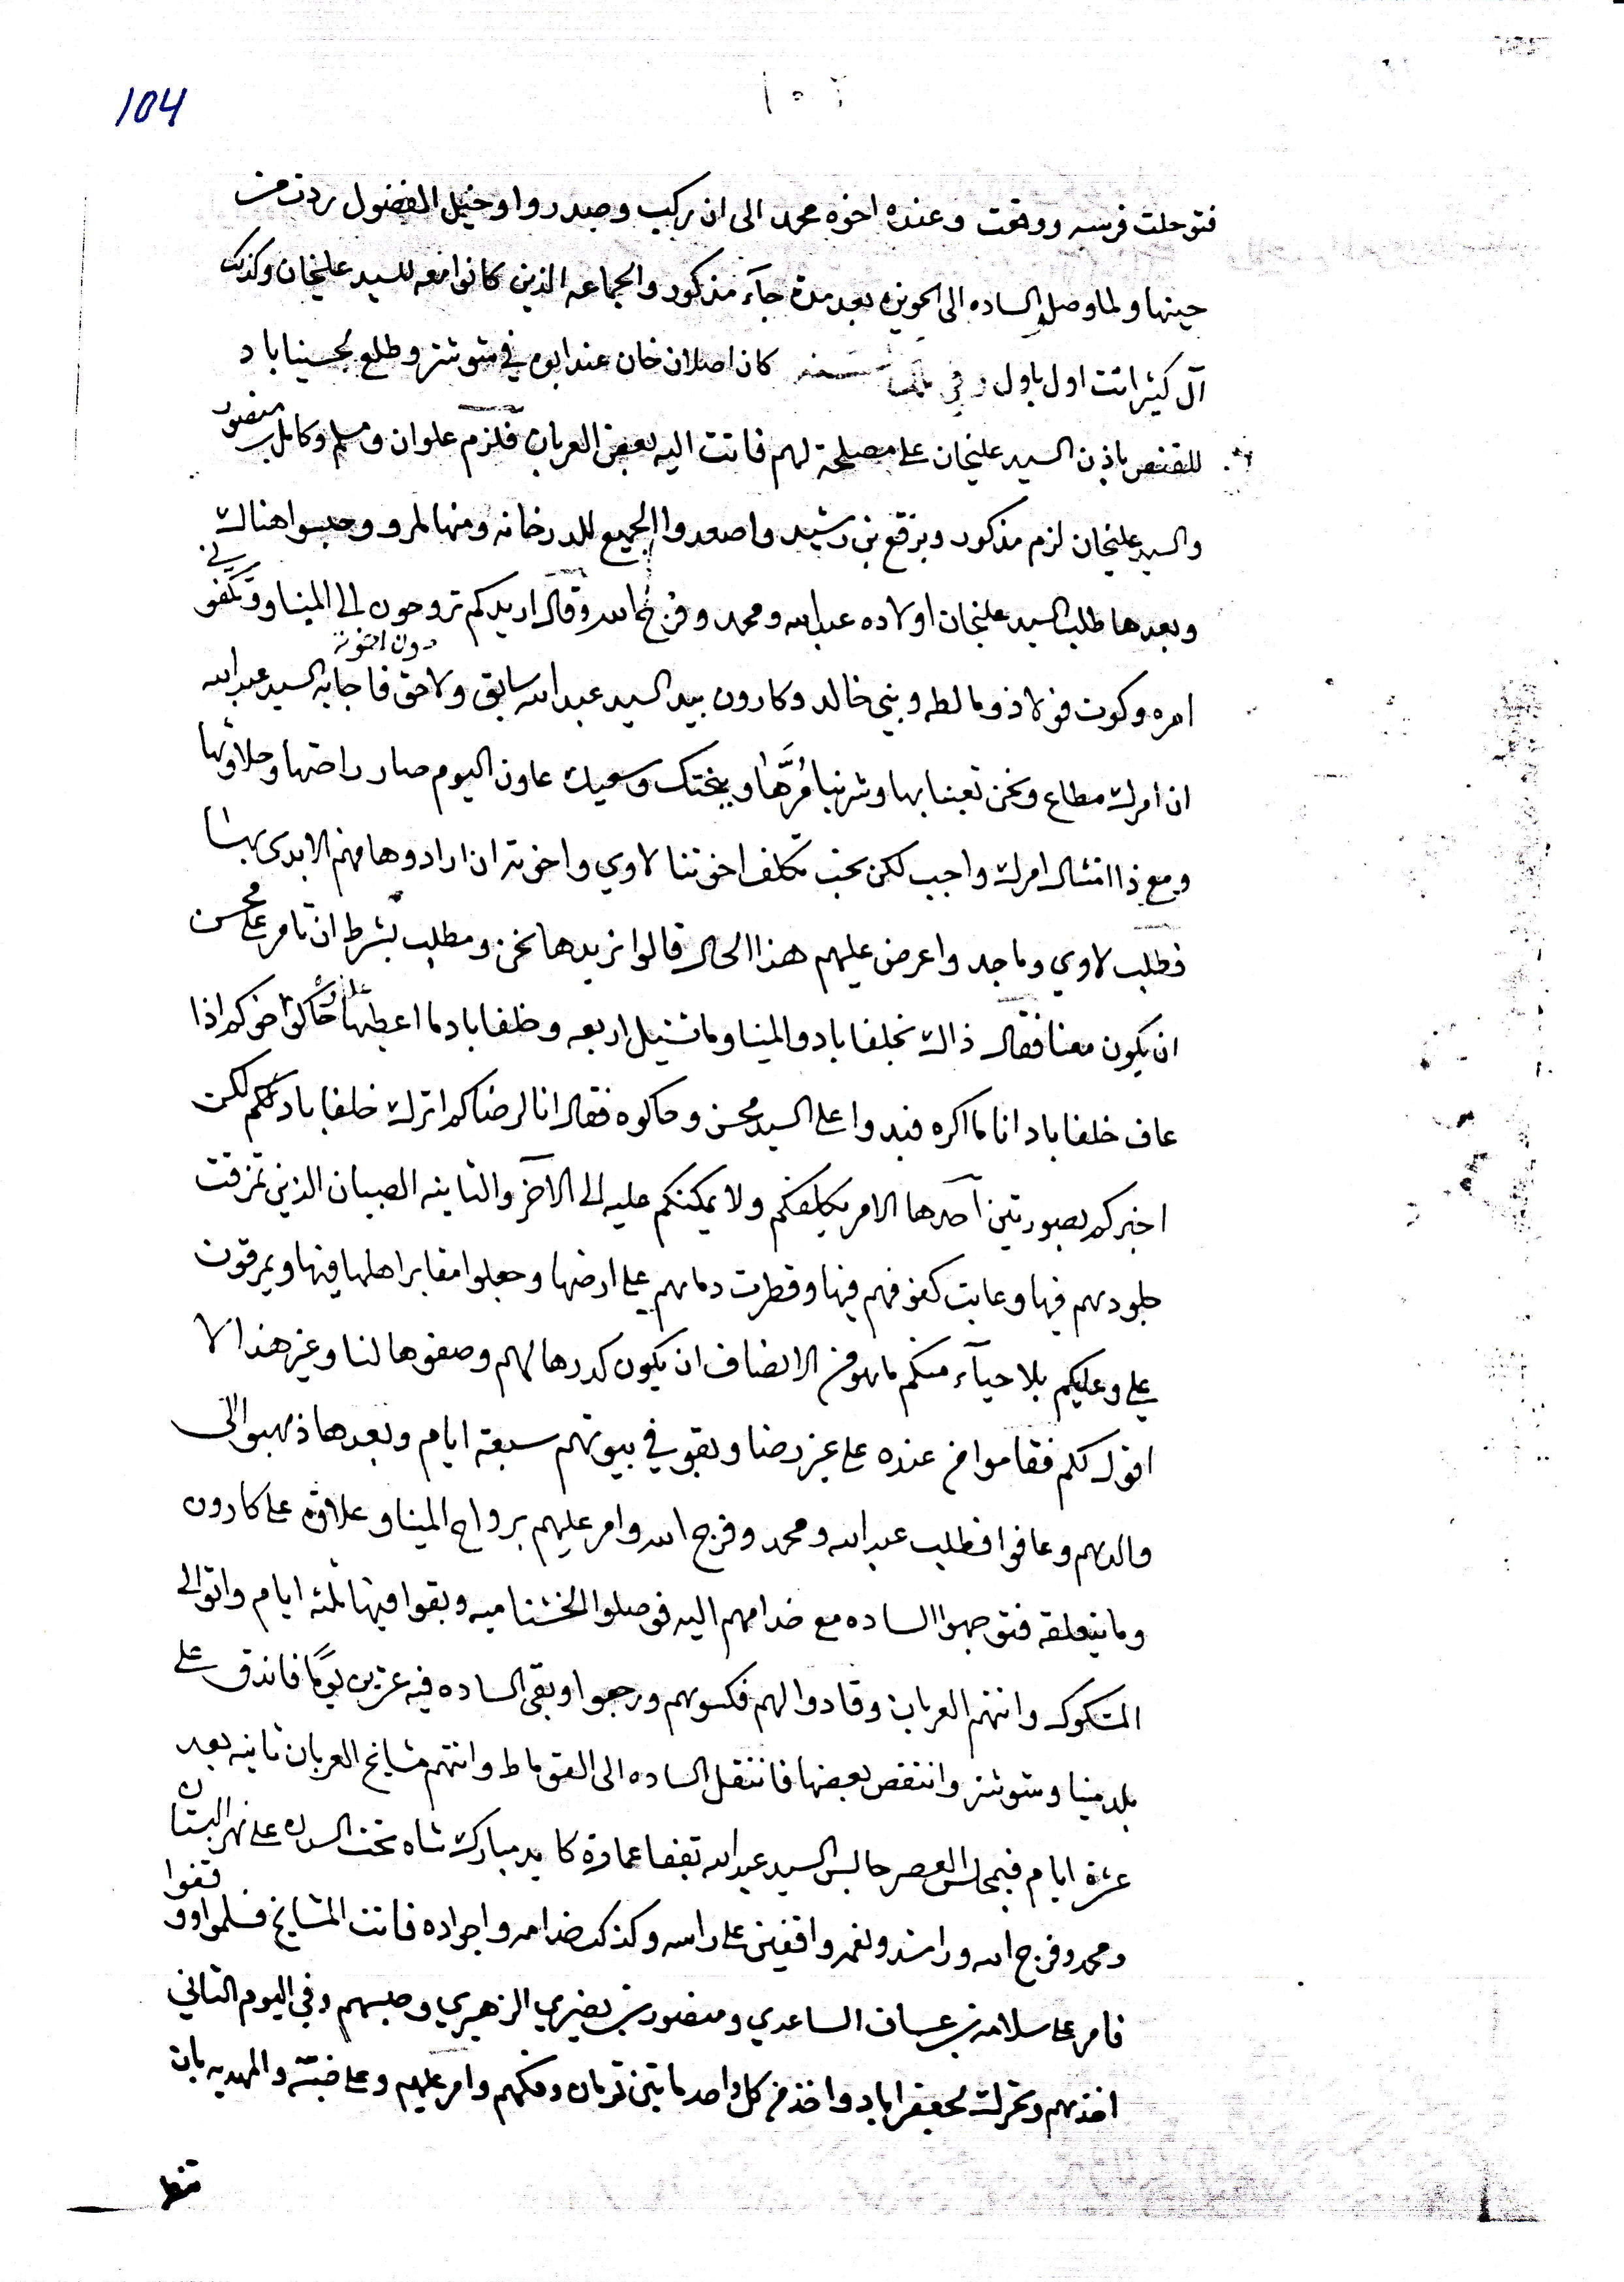 104
فتوحلت فرسه ووقعت وعنده اخوه محمد الى ان ركب وصدروا وخيل الفضول ردت من
حينها ولما وصل الساده الى الحويزه بعد مدة جآء مذكور والجماعه الذين كانوا معه للسيد عليخان وكذلك
آل كثير اتت اول باول وفي كان اصلان خان عند ابوه في شوشتر وطلع لحسيناباد
للقنص باذن السيد عليخان على مصلحة لهم فاتت اليه بعض العربان فلزم علوان ومسلم وكامل بن منصور
والسيد عليخان لزم مذكور وبرقع بن رشيد واصعدوا الجميع للدرخانه ومنها لمرو وحبسوا هناك
وبعدها طلب السيد عليخان اولاده عبدالله ومحمد وفرج الله وقال اريدكم تروحون الى الميناو وتكفوني
دون اخوته
امره وكوت فولاذ ومالطه وبني خالد وكارون بيد السيد عبدالله سابق ولاحق فاجابه السيد عبدالله
ان امرك مطاع ونحن تعبنا بها وشربنا مُرَّها وبختك وسعيك عاون اليوم صار راحتها وحلاوتها
ومع ذا امتثال امرك واجب لكن يجب تكلف اخوتنا لاوي واخوته ان ارادوها منهم الابدى بها
فطلب لاوي وماجد واعرض عليهم هذا الحال قالوا نريدها نحن ومطلب بشرط ان تامر على محسن
ان يكون معنا فقال ذاك بخلفاباد والميناو ماتشيل اربعه وخلفاباد ما اعطيها حاكوا اخوكم اذا
عاف خلفاباد انا ما اكره فبدوا على السيد محسن وحاكوه فقال انا لرضاكم اترك خلفاباد لكم لكن
اخبركم بصورتين احدها الامر يكلفكم ولا يمكنكم عليه الى الآخر والثانيه الصبيان الذين تمزقت
جلودهم فيها وعابت كفوفهم فيها وقطرت دماهم على ارضها وجعلوا مقابر اهلها فيها ويمرقون
علي وعليكم بلا حيآء منكم ماهو من الانصاف ان يكون كدرها لهم وصفوها لنا وغير هذا لا
اقول لكم فقاموا من عنده على غير رضا وبقو في بيوتهم سبعة ايام وبعدها ذهبوا الى
والدهم وعافوا فطلب عبدالله ومحمد وفرج الله وامر عليهم برواح الميناو علاوة على كارون
وما يتعلقه فتوجهوا الساده مع خدامهم اليه فوصلوا الخشناميه وبقوا فيها ثلثه ايام واتوا الى
المتكوك وانتهم العربان وقادوا لهم فكسوهم ورجعوا وبقى الساده فيه عشرين يومًا فاندق على
بلد ميناو شوشتر وانتقص بعضها فانتقل الساده الى القوماط وانتهم مشايخ العربان ثانيه بعد
عشرة ايام فبمجلس العصر جالس السيد عبدالله بقفا عمارة كايد مبارك شاه تحت السدره على نهر البستان
ومحمد وفرج الله وراشد ونعمه واقفين على راسه وكذلك خدامه واجواده فاتت المشايخ فسلموا ووقفوا
فامر على سلامه بن عساف الساعدي ومنصور بن نصيري الزهيري وحبسهم وفي اليوم الثاني
اخذهم وتحرك لجعفراباد واخذ من كل واحد مايتين تومان وفكهم وامر عليهم وعلى ضبّه والمهديه بان